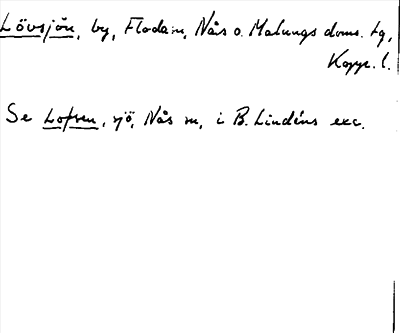 Lövsjön, by, Floda sn, Nås o. Malungs doms. tg,
Kopp. l.
Se Lofsen, sjö, Nås sn, i B. Lindéns exc.